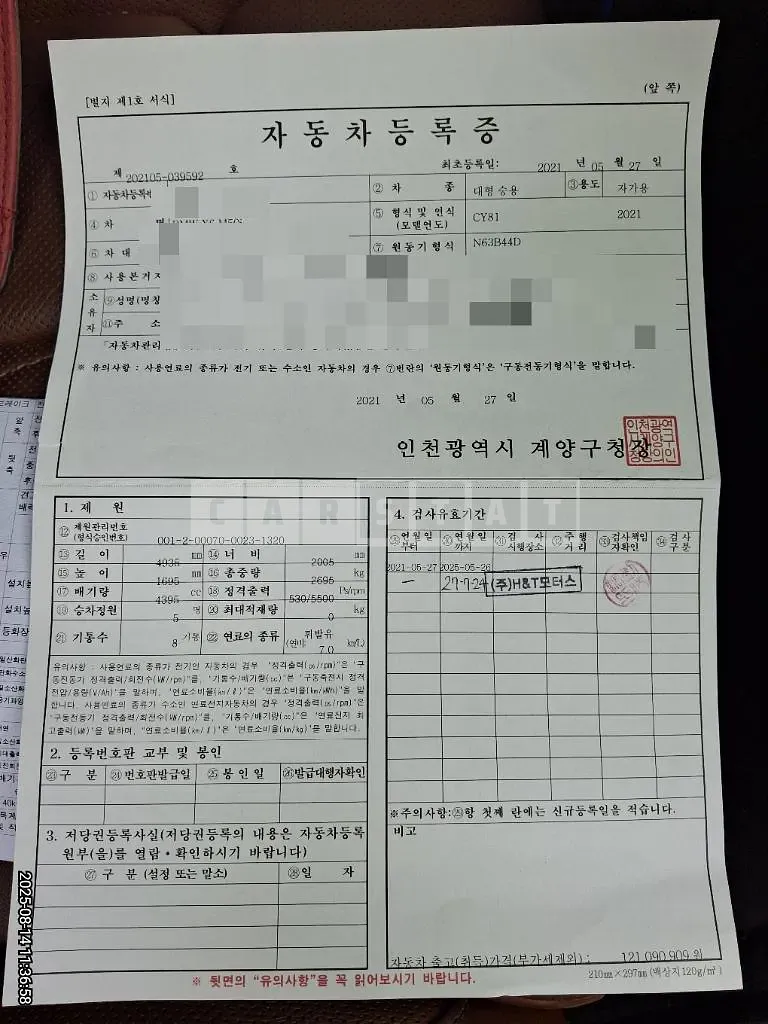 [별지 제1호 서식]
(앞 쪽)
자동차등록증
제 202105-039592 호
최초등록일: 2021 년 05 월 27 일
① 자동차등록번
② 차 종 대형 승용 ③용도 자가용
④ 차 명
⑤ 형식 및 연식 (모델연도) CY81 2021
⑥ 차 대
⑦ 원동기 형식 N63B44D
⑧ 사용본거지
소유자
⑨성명(명칭
⑪주 소
「자동차관리
※ 유의사항 : 사용연료의 종류가 전기 또는 수소인 자동차의 경우 ⑦번란의 '원동기형식'은 '구동전동기형식'을 말합니다.
2021 년 05 월 27 일
인천광역시 계양구청장
인천광역
시계양구
청장의인
CARSEAT
1. 제 원
⑫ 제원관리번호 (형식승인번호) 001-2-00070-0023-1320
⑬ 길 이 4935 mm ⑭ 너 비 2005 mm
⑮ 높 이 1695 mm ⑯ 총중량 2695 kg
⑰ 배기량 4395 cc ⑱ 정격출력 530/5500 Ps/rpm
⑲ 승차정원 5 명 ⑳ 최대적재량 0 kg
㉑ 기통수 8 기통 ㉒ 연료의 종류 휘발유 (연비 7.0 km/L)
유의사항 : 사용연료의 종류가 전기인 자동차의 경우 '정격출력(ps/rpm)'은 '구
동전동기 정격출력/최전수(kW/rpm)'를, '기통수/배기량(cc)'은 '구동축전지 정격
전압/용량(V/Ah)'을 말하며, '연료소비율(km/ℓ)'은 '연료소비율(km/kWh)'을 말
합니다. 사용연료의 종류가 수소인 연료전지자동차의 경우 '정격출력(ps/rpm)'은
'구동전동기 정격출력/최전수(kW/rpm)'를, '기통수/배기량(cc)'은 '연료전지 최
고출력(kW)'을 말하며, '연료소비율(km/ℓ)'은 '연료소비율(km/kg)'를 말합니다.
2. 등록번호판 교부 및 봉인
㉓구 분 ㉔번호판발급일 ㉕봉 인 일 ㉖발급대행자확인
3. 저당권등록사실(저당권등록의 내용은 자동차등록
원부(을)를 열람・확인하시기 바랍니다)
㉗ 구 분 (설정 또는 말소) ㉘일 자
4. 검사유효기간
연월일 부터 연월일 까지 검 사 시행장소 주행 거리 검사책임 자확인 검사 구분
2021-05-27 2025-05-26
- 27-7-24 (주)H&T모터스
※주의사항:㉙항 첫째 란에는 신규등록일을 적습니다.
비고
자동차 출고(취득)가격(부가세제외) : 121,090,909 원
210㎜×297㎜(백상지120g/㎡)
※ 뒷면의 "유의사항"을 꼭 읽어보시기 바랍니다.
2025-08-14 11:36:58